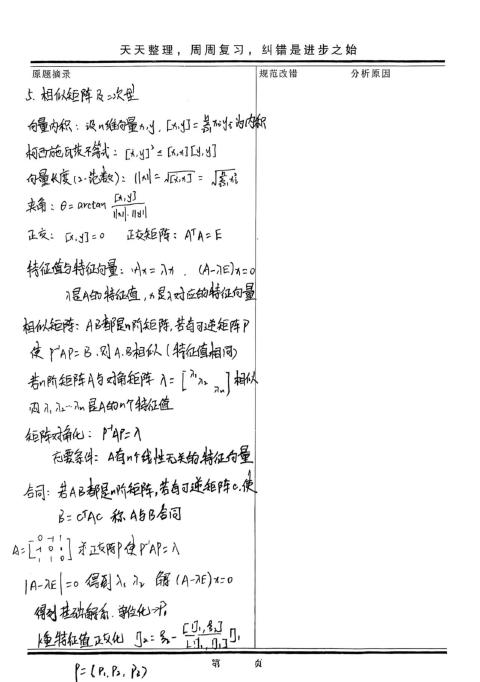 天天整理，周周复习，纠错是进步之始
原题摘录 规范改错 分析原因
5. 相似矩阵及二次型
向量内积：设n维向量x,y, [x,y]=∑xᵢyᵢ为内积
柯西施瓦茨不等式：[x,y]²≤[x,x][y,y]
向量长度(2-范数)：||x||=√[x,x]=√∑xᵢ²
夹角：θ=arctan [x,y]/||x||·||y||
正交：[x,y]=0 正交矩阵：AᵀA=E
特征值与特征向量：Ax=λx . (A-λE)x=0
λ是A的特征值，x是λ对应的特征向量
相似矩阵：A B都是n阶矩阵,若有可逆矩阵P
使 P⁻¹AP=B.则A.B相似(特征值相同)
若n阶矩阵A与对角矩阵 λ=[λ₁ λ₂ λn]相似
则λ₁,λ₂…λn是A的n个特征值
矩阵对角化：P⁻¹AP=λ
充要条件：A有n个线性无关的特征向量
合同：若A B都是n阶矩阵,若有可逆矩阵C.使
B=CᵀAC 称A与B合同
A=[0 -1 1; -1 0 1; 1 1 0] 求正交阵P使P⁻¹AP=λ
|A-λE|=0 得到λ₁ λ₂ 解(A-λE)x=0
得到基础解系.单位化→P₁
k重特征值正交化 η₂=ξ₂-[η₁,ξ₂]/[η₁,η₁] η₁
第 页
P=(P₁,P₂,P₃)